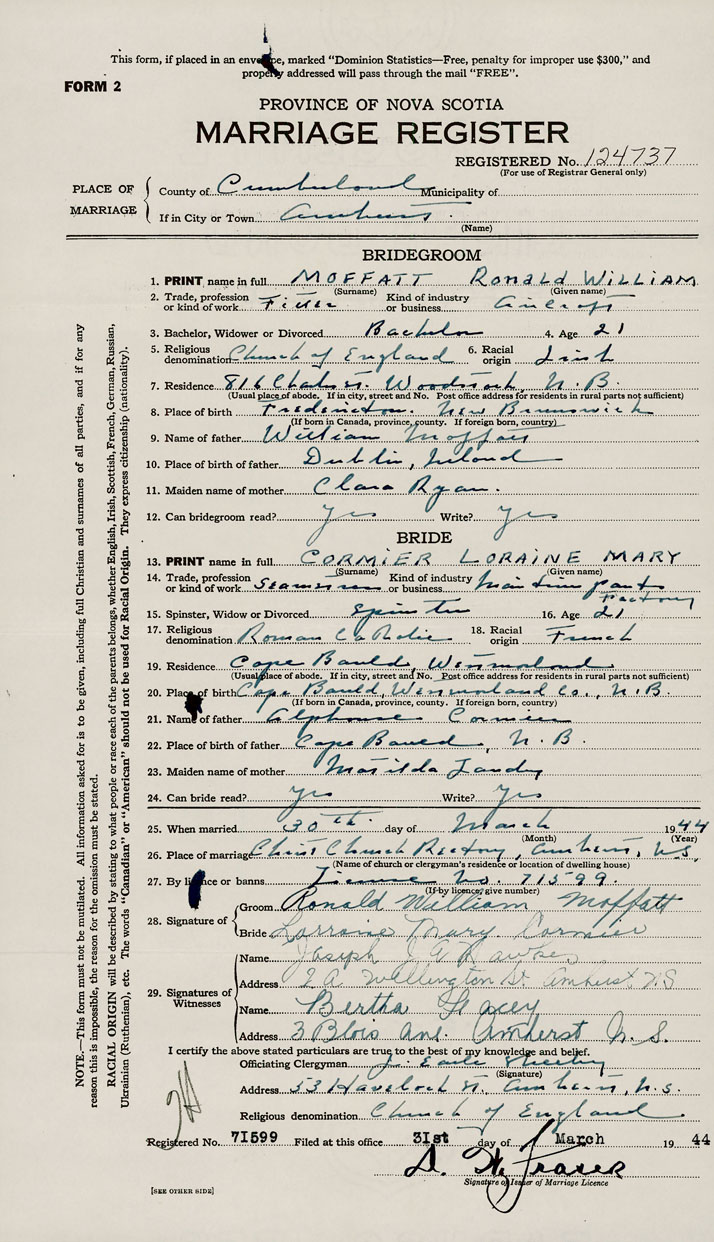 This form, if placed in an envelope, marked "Dominion Statistics—Free, penalty for improper use $300," and
properly addressed will pass through the mail "FREE".
FORM 2
PROVINCE OF NOVA SCOTIA
MARRIAGE REGISTER
REGISTERED No. 124737
(For use of Registrar General only)
PLACE OF MARRIAGE
County of Cumberland Municipality of
If in City or Town Amherst
(Name)
BRIDEGROOM
1. PRINT name in full MOFFATT RONALD WILLIAM
(Surname) (Given name)
2. Trade, profession or kind of work Fitter Kind of industry or business Aircraft
3. Bachelor, Widower or Divorced Bachelor 4. Age 21
5. Religious denomination Church of England 6. Racial origin Irish
7. Residence 816 St. Woodstock, N.B.
(Usual place of abode. If in city, street and No. Post office address for residents in rural parts not sufficient)
8. Place of birth Fredericton. New Brunswick
(If born in Canada, province, county. If foreign born, country)
9. Name of father William Moffatt
10. Place of birth of father Dublin, Ireland
11. Maiden name of mother Clara Ryan.
12. Can bridegroom read? Yes Write? Yes
BRIDE
13. PRINT name in full CORMIER LORAINE MARY
(Surname) (Given name)
14. Trade, profession or kind of work Kind of industry or business parts
Factory
15. Spinster, Widow or Divorced Spinster 16. Age 21
17. Religious denomination Roman Catholic 18. Racial origin French
19. Residence Cape Bauld, Westmorland
(Usual place of abode. If in city, street and No. Post office address for residents in rural parts not sufficient)
20. Place of birth Cape Bauld, Westmorland Co., N.B.
(If born in Canada, province, county. If foreign born, country)
21. Name of father Alphonse Cormier
22. Place of birth of father Cape Bauld, N.B.
23. Maiden name of mother Matilda Landry
24. Can bride read? Yes Write? Yes
25. When married 30th day of March 1944
(Month) (Year)
26. Place of marriage Christ Church Rectory, Amherst, N.S.
(Name of church or clergyman's residence or location of dwelling house)
27. By licence or banns License No. 71599.
(If by licence, give number)
28. Signature of
Groom Ronald William Moffatt
Bride Lorraine Mary Cormier
29. Signatures of Witnesses
Name Joseph J.A.
Address 2A Wellington St. Amherst N.S
Name Bertha
Address 3 Blois Ave. Amherst N.S.
I certify the above stated particulars are true to the best of my knowledge and belief.
Officiating Clergyman J. Earle
(Signature)
Address 53 Havelock St. Amherst, N.S.
Religious denomination Church of England
Registered No. 71599 Filed at this office 31st day of March 1944
D. W. Fraser
Signature of Issuer of Marriage Licence
[SEE OTHER SIDE]
NOTE.—This form must not be mutilated. All information asked for is to be given, including full Christian and surnames of all parties, and if for any
reason this is impossible, the reason for the omission must be stated.
RACIAL ORIGIN will be described by stating to what people or race each of the parents belongs, whether English, Irish, Scottish, French, German, Russian,
Ukrainian (Ruthenian), etc. The words "Canadian" or "American" should not be used for Racial Origin. They express citizenship (nationality).